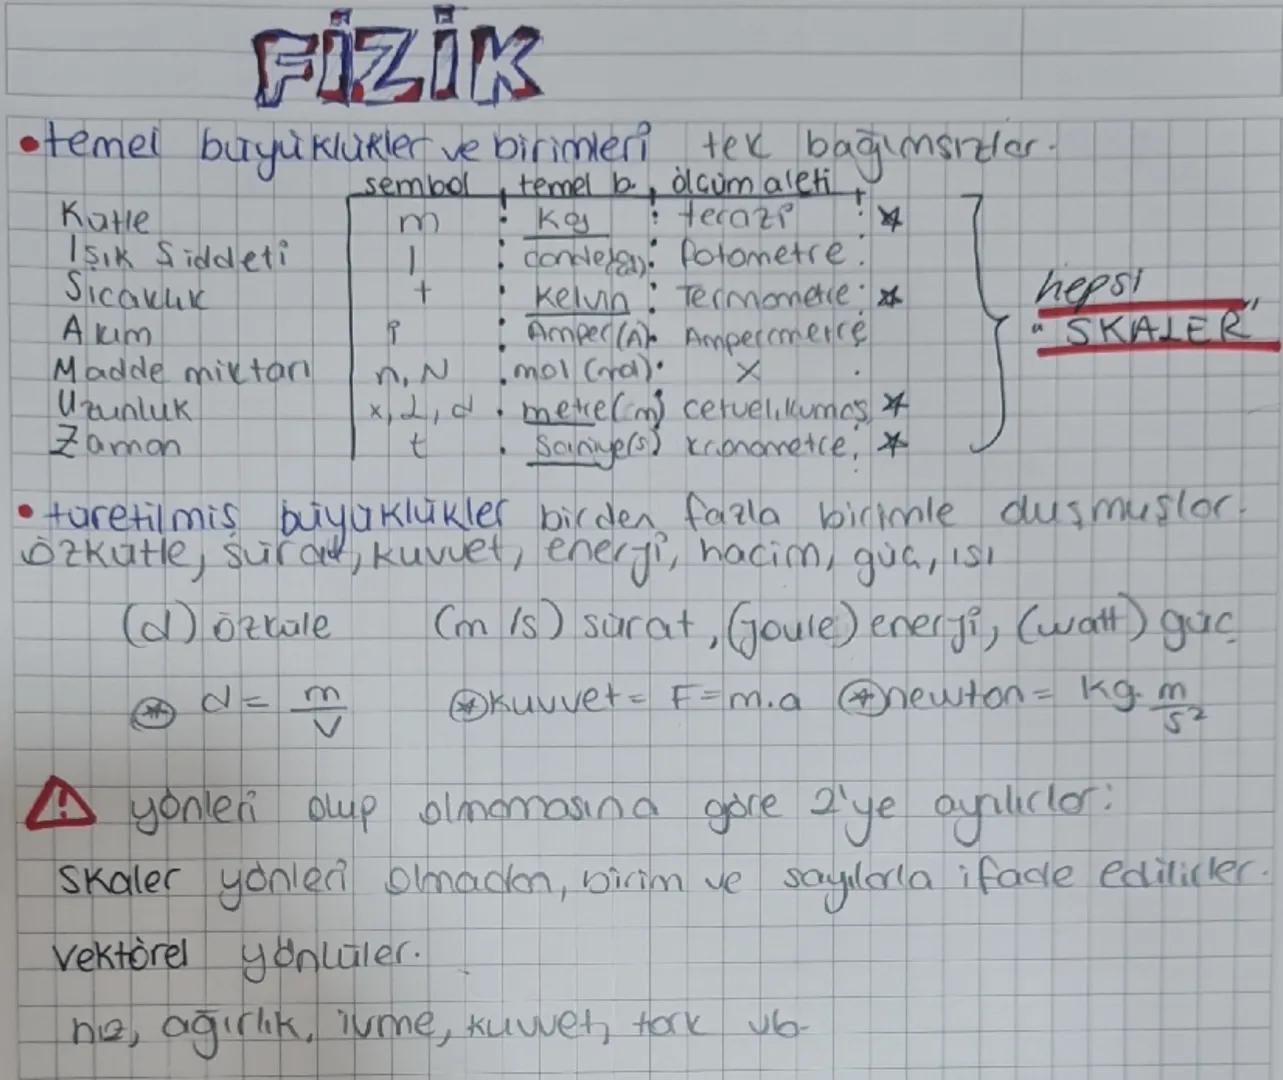 FİZİK
•temel büyüklükler ve birimleri tek bağımsızlar.
sembol temel b. ölçüm aleti
Kütle m : Kg : terazi : *
Işık Şiddeti I : candela : fotometre :
Sıcaklık t : Kelvin : Termometre : *
Akım i : Amper(A) Ampermetre
Madde miktarı n, N . mol (mol) : X .
Uzunluk x, L, d . metre(m) cetvel, kumaş *
Zaman t . Saniye(s) kronometre; *
hepsi
"SKALER"
• türetilmiş büyüklükler birden fazla birimle duşmuşlar.
özkütle, sürat, kuvvet, enerji, hacim, güç, ısı
(d) özküle (m/s) sürat, (joule) enerji, (watt) güç
* d = m/V * kuvvet = F=m.a * newton = kg. m/s²
! yönleri olup olmamasına göre 2'ye ayrılırlar:
Skaler yönleri olmadan, birim ve sayılarla ifade edilirler.
Vektörel yönlüler.
hız, ağırlık, ivme, kuvvet, tork vb.